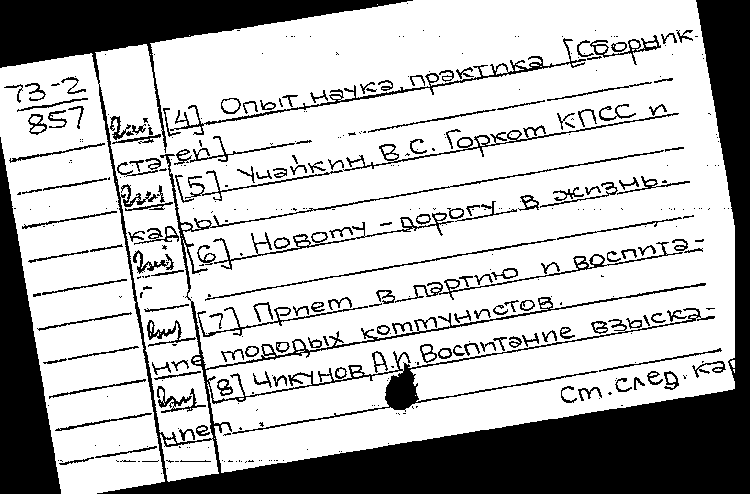 73-2
857
[4]. Опыт, наука, практика. [Сборник
статей].
[5]. Учайкин, В.С. Горком КПСС и
кадры.
[6]. Новому - дорогу в жизнь.
[7] Прием в партию и воспита-
ние молодых коммунистов.
[8]. Чикунов, А.И. Воспитание взыска-
нием.
См. след. кар